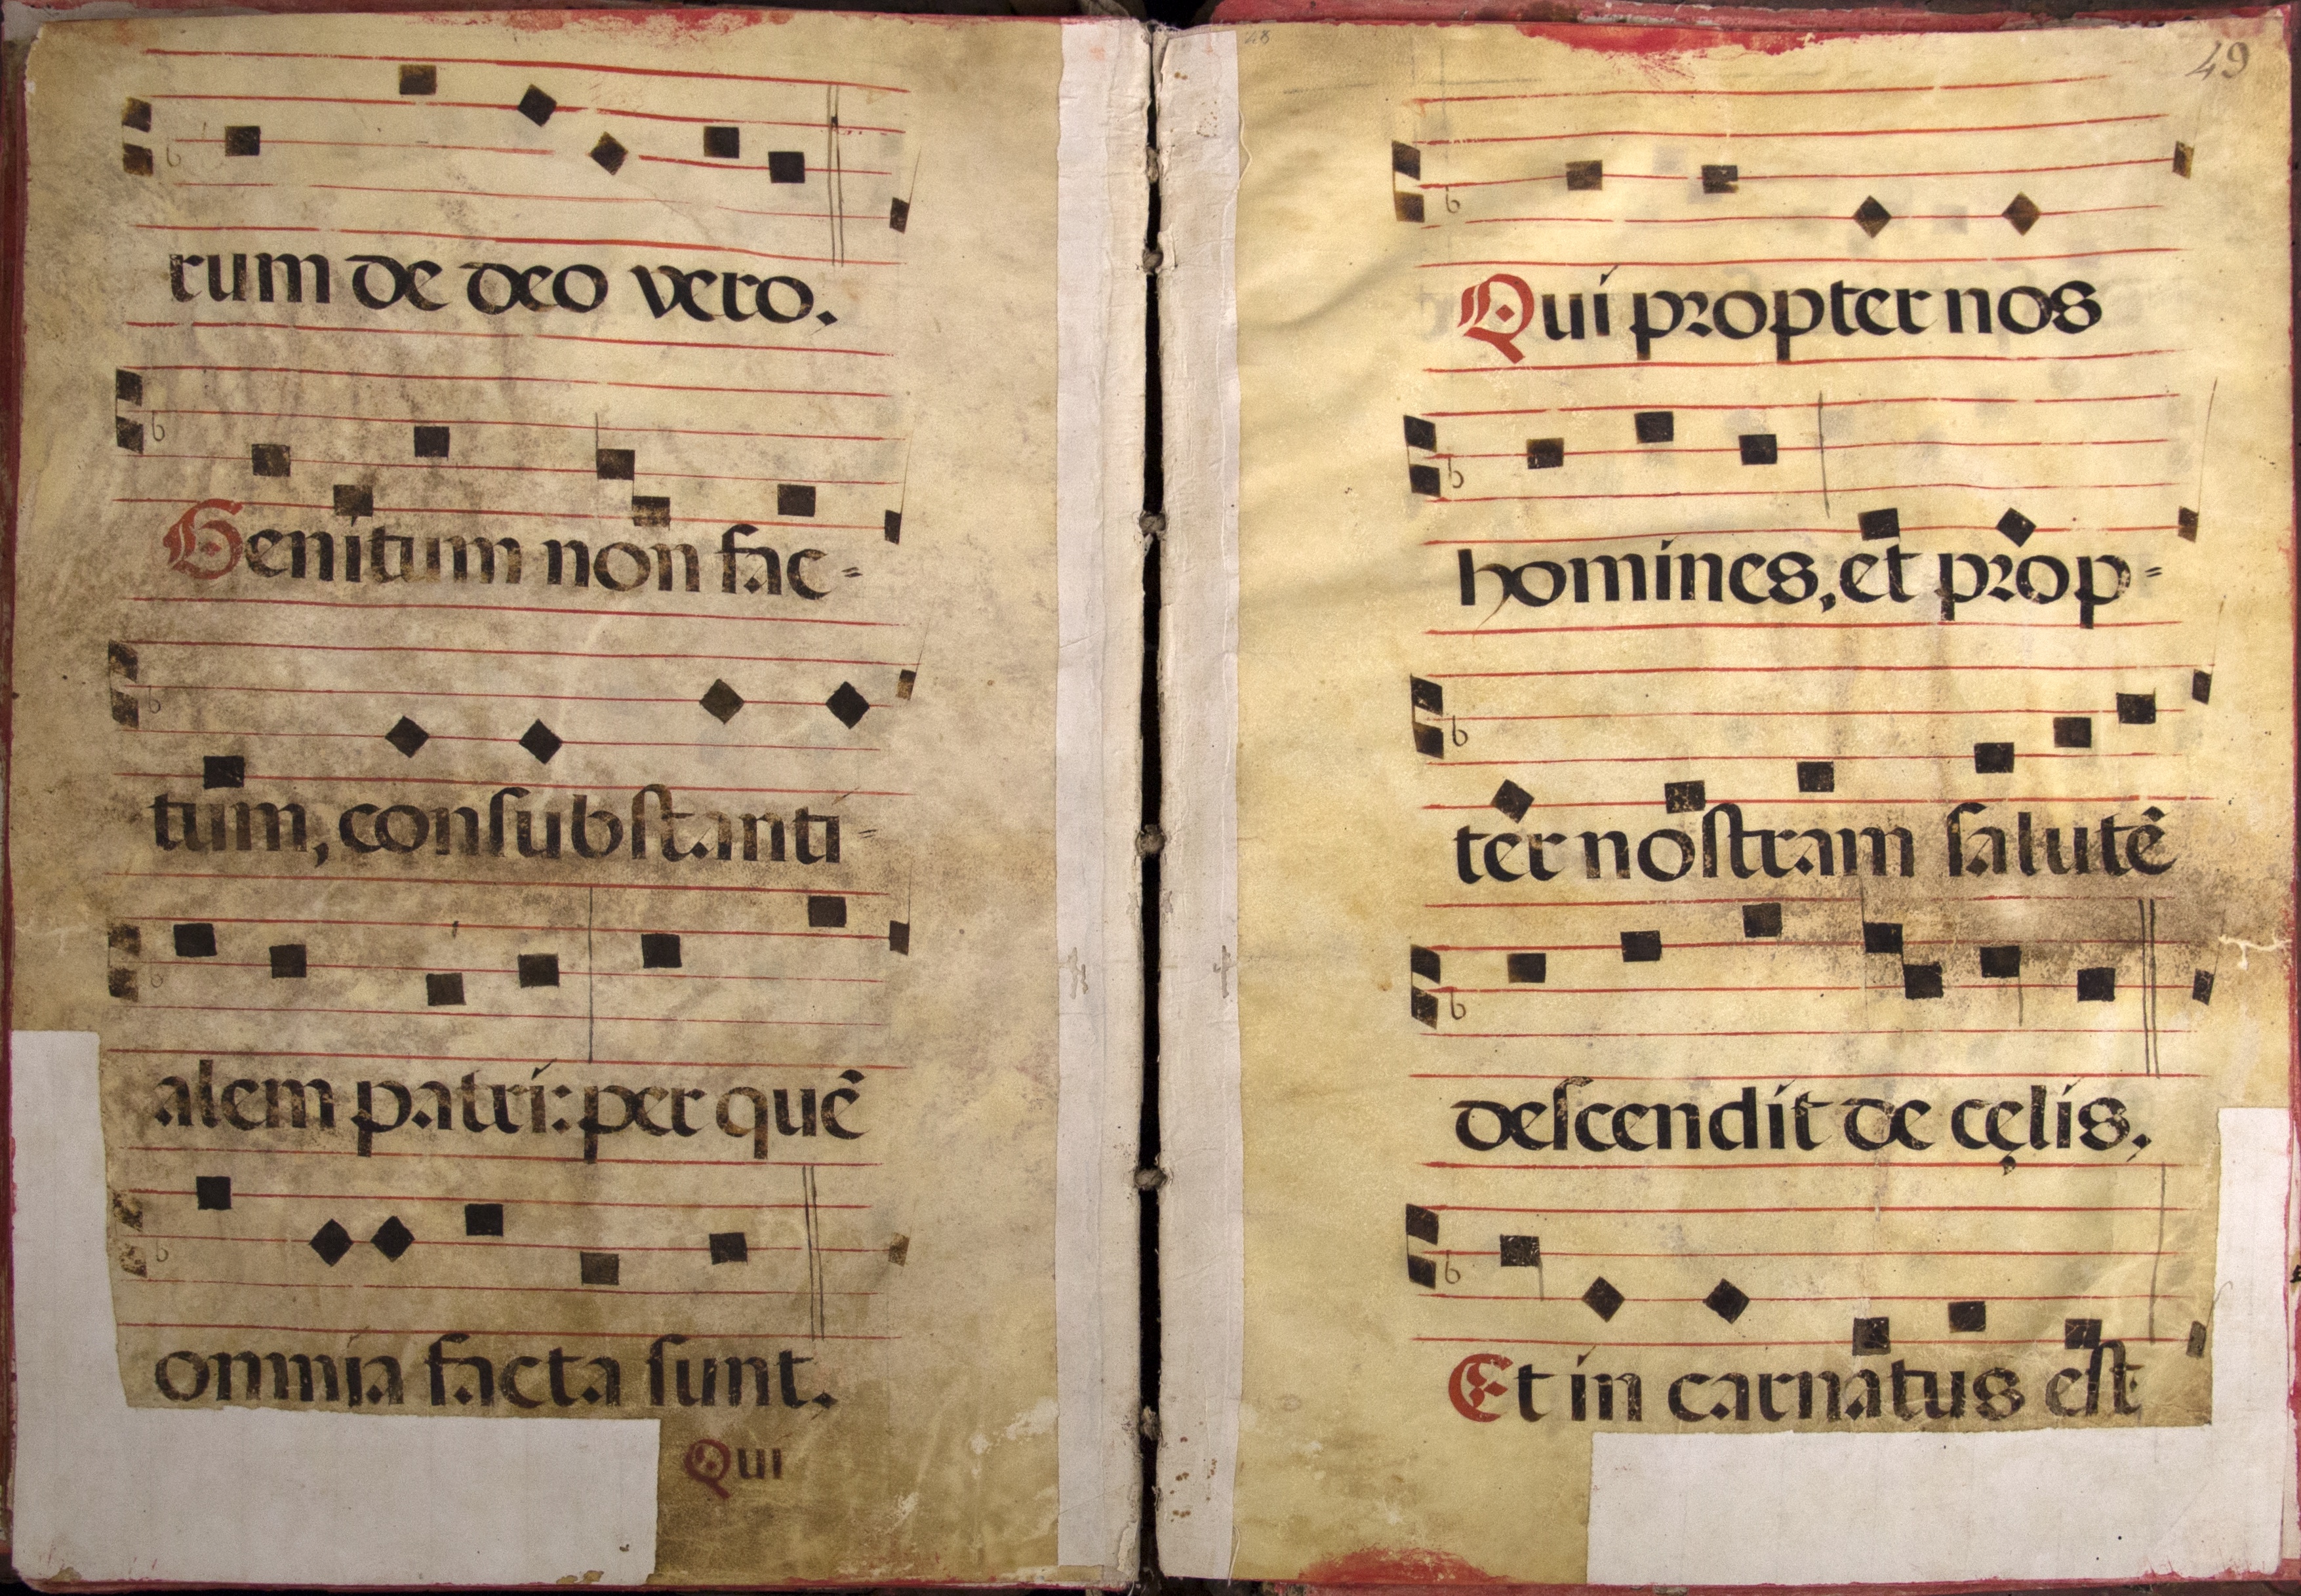 rum de deo vero.
Genitum non fac-
tum, consubstanti-
alem patri: per quẽ
omnia facta sunt.
Qui
49
Qui propter nos
homines, et prop-
ter nostram salutẽ
descendit de cęlis.
Et in carnatus est